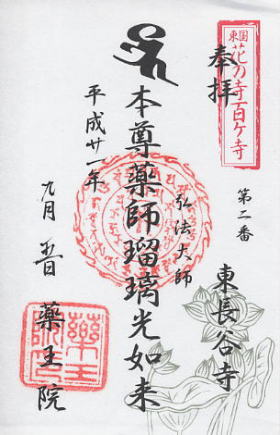 東国
花の寺百ヶ寺
奉拝
第二番
東長谷寺
弘法大師
本尊薬師瑠璃光如来
平成廿一年
九月五日
薬王院